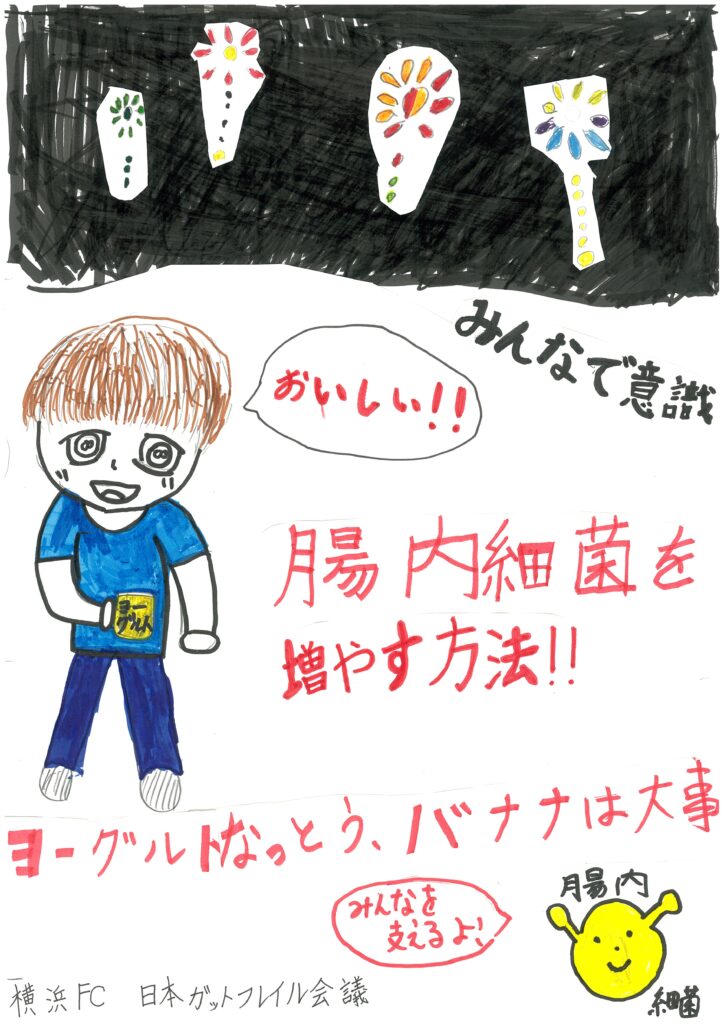 みんなで意識
おいしい!!
腸内細菌を
増やす方法!!
ヨー
グルト
ヨーグルトなっとう、バナナは大事
腸内
みんなを
支えるよ!
細菌
横浜FC 日本ガットフレイル会議